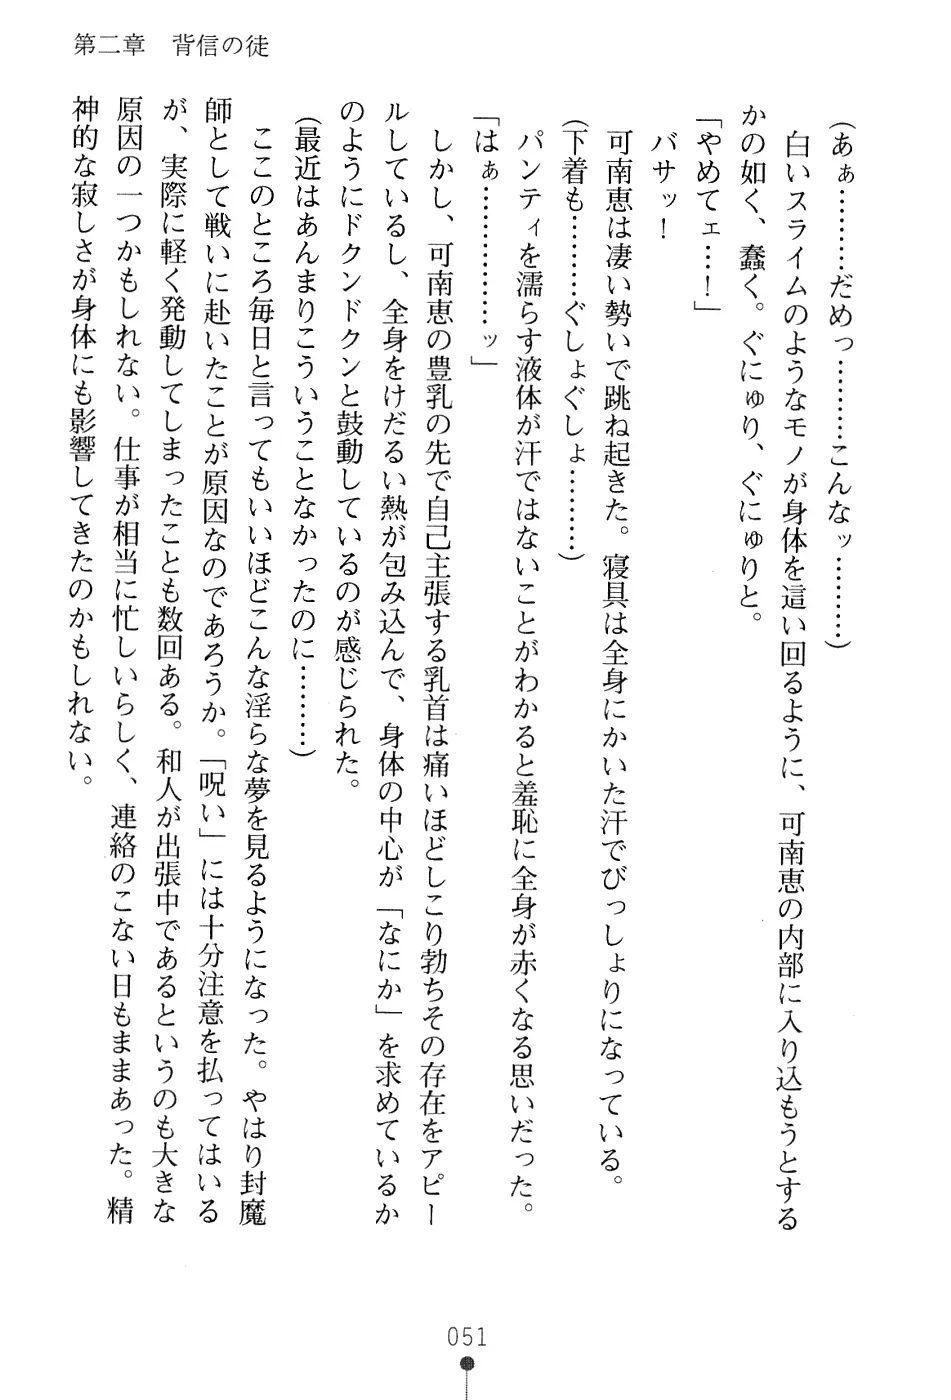 第二章　背信の徒
（あぁ………だめっ………こんなッ………）
　白いスライムのようなモノが身体を這い回るように、可南恵の内部に入り込もうとする
かの如く、蠢く。ぐにゅり、ぐにゅりと。
「やめてェ…！」
　バサッ！
　可南恵は凄い勢いで跳ね起きた。寝具は全身にかいた汗でびっしょりになっている。
（下着も………ぐしょぐしょ………）
　パンティを濡らす液体が汗ではないことがわかると羞恥に全身が赤くなる思いだった。
「はぁ……………ッ」
　しかし、可南恵の豊乳の先で自己主張する乳首は痛いほどしこり勃ちその存在をアピー
ルしているし、全身をけだるい熱が包み込んで、身体の中心が「なにか」を求めているか
のようにドクンドクンと鼓動しているのが感じられた。
（最近はあんまりこういうことなかったのに………）
　ここのところ毎日と言ってもいいほどこんな淫らな夢を見るようになった。やはり封魔
師として戦いに赴いたことが原因なのであろうか。「呪い」には十分注意を払ってはいる
が、実際に軽く発動してしまったことも数回ある。和人が出張中であるというのも大きな
原因の一つかもしれない。仕事が相当に忙しいらしく、連絡のこない日もままあった。精
神的な寂しさが身体にも影響してきたのかもしれない。
051